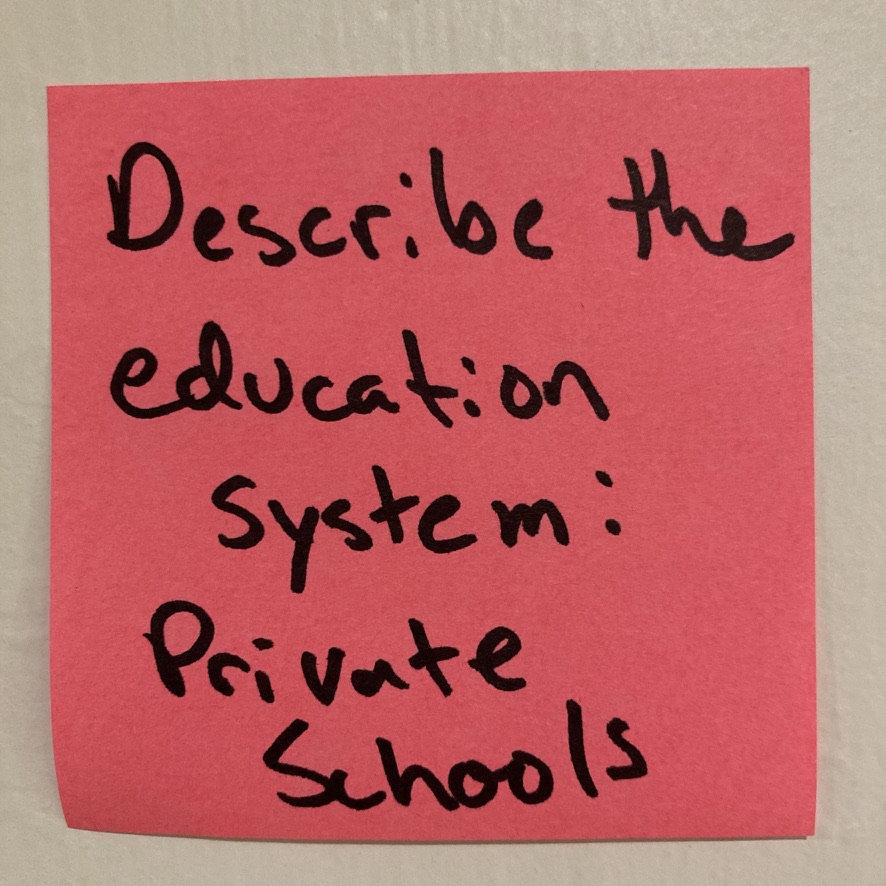 Describe the
education
system:
Private
Schools